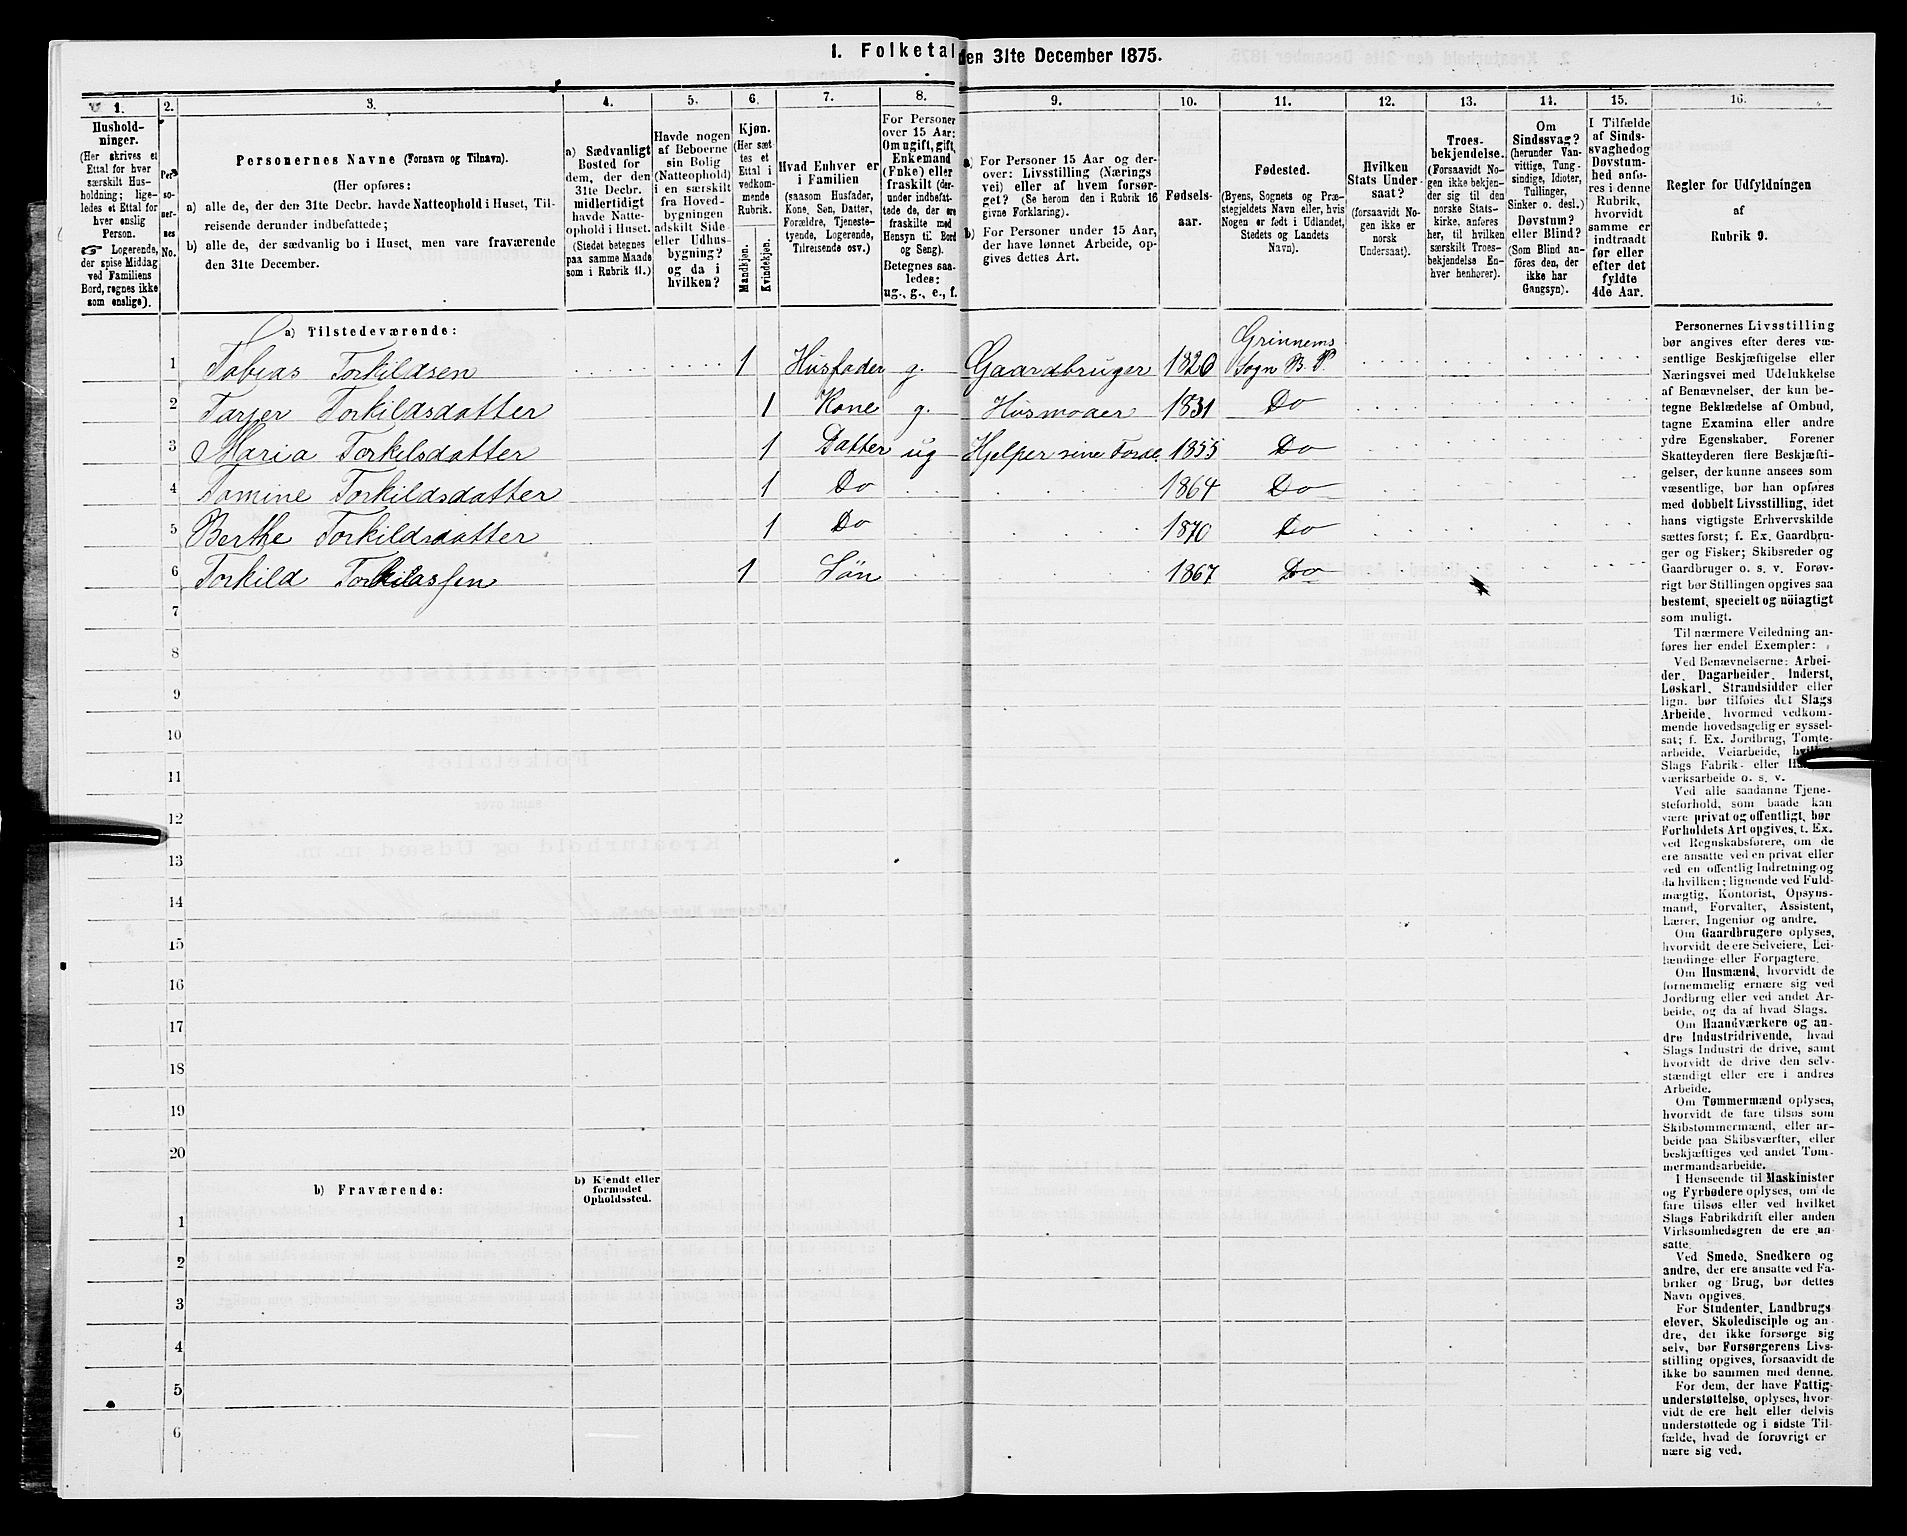 1. Folketal den 31te December 1875.
1.
Hushold-
ninger.
(Her skrives et
Ettal for hver
særskilt Hus-
holdning; lige-
ledes et Ettal for
hver enslig
Person.
☞ Logerende,
der spise Middag
ved Familiens
Bord, regnes ikke
som enslige).
2.
Per-
so-
ner-
nes
No.
3.
Personernes Navne (Fornavn og Tilnavn).
(Her opføres:
a) alle de, der den 31te Decbr. havde Natteophold i Huset, Til-
reisende derunder indbefattede;
b) alle de, der sædvanlig bo i Huset, men vare fraværende
den 31te December.
4.
a) Sædvanligt
Bosted for
dem, der den
31te Decbr.
midlertidigt
havde Natte-
ophold i Huset.
(Stedet betegnes
paa samme Maade
som i Rubrik 11.)
5.
Havde nogen
af Beboerne
sin Bolig
(Natteophold)
i en særskilt
fra Hoved-
bygningen
adskilt Side-
eller Udhus-
bygning?
og da i
hvilken?
6.
Kjøn.
(Her sæt-
tes et
Ettal i
vedkom-
mende
Rubrik.
Mandkjøn.
Kvindekjøn.
7.
Hvad Enhver er
i Familien
(saasom Husfader,
Kone, Søn, Datter,
Forældre, Tjeneste-
tyende, Logerende,
Tilreisende osv.)
8.
For Personer
over 15 Aar:
Om ugift, gift,
Enkemand
(Enke) eller
fraskilt (der-
under indbefat-
tede de, der ere
fraskilte med
Hensyn til Bord
og Seng).
Betegnes saa-
ledes:
ug., g., e., f.
9.
a) For Personer 15 Aar og der-
over: Livsstilling (Nærings
vei) eller af hvem forsør-
get? (Se herom den i Rubrik 16
givne Forklaring).
b) For Personer under 15 Aar,
der have lønnet Arbeide, op-
gives dettes Art.
10.
Fødsels-
aar.
11.
Fødested.
(Byens, Sognets og Præ-
stegjeldets Navn eller, hvis
Nogen er født i Udlandet,
Stedets og Landets
Navn).
12.
Hvilken
Stats Under-
saat?
(forsaavidt No-
gen ikke er
norsk
Undersaat).
13.
Troes-
bekjendelse.
(Forsaavidt No-
gen ikke bekjen-
der sig til den
norske Stats-
kirke, anføres
her, til hvilken
særskilt Troes-
bekjendelse En-
hver henhører).
14.
Om
Sindssvag?
(herunder Van-
vittige, Tung-
sindige, Idioter,
Tullinger,
Sinker o. desl.)
Døvstum?
eller Blind?
(Som Blind an-
føres den, der
ikke har
Gangsyn).
15.
I Tilfælde
af Sinds-
svaghed og
Døvstum-
hed anfø-
res i denne
Rubrik,
hvorvidt
samme er
indtraadt
før eller
efter det
fyldte
4de Aar.
16.
Regler for Udfyldningen
af
Rubrik 9.
a) Tilstedeværende:
1 Tobias Torkildsen 1 Husfader g. Gaardbruger 1820 Grinnems
Sogn B. P.
2 Tarjer Torkildsdatter 1 Kone g. Husmoder 1831 Do
3 Maria Torkilsdatter 1 Datter ug Hjelper sine Foræl. 1855 Do
4 Tomine Torkildsdatter 1 Do 1864 Do
5 Berthe Torkildsdatter 1 Do 1870 Do
6 Torkild Torkildssen 1 Søn 1867 Do
7
8
9
10
11
12
13
14
15
16
17
18
19
20
b) Fraværende:
b) Kjendt eller
formodet
Opholdssted.
1
2
3
4
5
6
Personernes Livsstilling
bør angives efter deres væ-
sentlige Beskjæftigelse eller
Næringsvei med Udelukkelse
af Benævnelser, der kun be-
tegne Beklædelse af Ombud,
tagne Examina eller andre
ydre Egenskaber. Forener
Skatteyderen flere Beskjæfti-
gelser, der kunne ansees som
væsentlige, bør han opføres
med dobbelt Livsstilling, idet
hans vigtigste Erhvervskilde
sættes først; f. Ex. Gaardbru-
ger og Fisker; Skibsreder og
Gaardbruger o. s. v. Forøv-
rigt bør Stillingen opgives saa
bestemt, specielt og nöiagtigt
som muligt.
Til nærmere Veiledning an-
føres her endel Exempler:
Ved Benævnelserne: Arbei-
der, Dagarbeider, Inderst,
Løskarl, Strandsidder eller
lign. bør tilføies det Slags
Arbeide, hvormed vedkom-
mende hovedsagelig er syssel-
sat; f. Ex. Jordbrug, Tomte-
arbeide, Veiarbeide, hvilket
Slags Fabrik- eller
værksarbeide o. s. v.
Ved alle saadanne Tjene-
steforhold, som baade kan
være privat og offentligt, bør
Forholdets Art opgives, t. Ex.
ved Regnskabsførere, om de
ere ansatte ved en privat eller
ved en offentlig Indretning og
da hvilken; lignende ved Fuld-
mægtig, Kontorist, Opsyns-
mand, Forvalter, Assistent,
Lærer, Ingeniør og andre.
Om Gaardbrugere oplyses,
hvorvidt de ere Selveiere, Lei-
lændinge eller Forpagtere.
Om Husmænd, hvorvidt de
fornemmelig ernære sig ved
Jordbrug eller ved andet Ar-
beide, og da af hvad Slags.
Om Haandværkere og an-
dre Industridrivende, hvad
Slags Industri de drive, samt
hvorvidt de drive den selv-
stændigt eller ere i andres
Arbeide.
Om Tømmermænd oplyses,
hvorvidt de fare tilsøs som
Skibstømmermænd, eller ar-
beide paa Skibsværfter, eller
beskjæftiges ved andet Tøm-
mermandsarbeide.
I Henseende til Maskinister
og Fyrbødere oplyses, om de
fare tilsøs eller ved hvilket
Slags Fabrikdrift eller anden
Virksomhedsgren de ere an-
satte.
Ved Smede, Snedkere og
andre, der ere ansatte ved Fa-
briker og Brug, bør dettes
Navn opgives.
For Studenter, Landbrugs
elever, Skoledisciple og an-
dre, der ikke forsørge sig
selv, bør Forsørgerens Livs-
stilling opgives, forsaavidt de
ikke bo sammen med denne.
For dem, der have Fattig-
understøttelse, oplyses, hvor-
vidt de ere helt eller delvis
understøttede og i sidste Til-
fælde, hvad de forøvrigt er
nære sig ved.